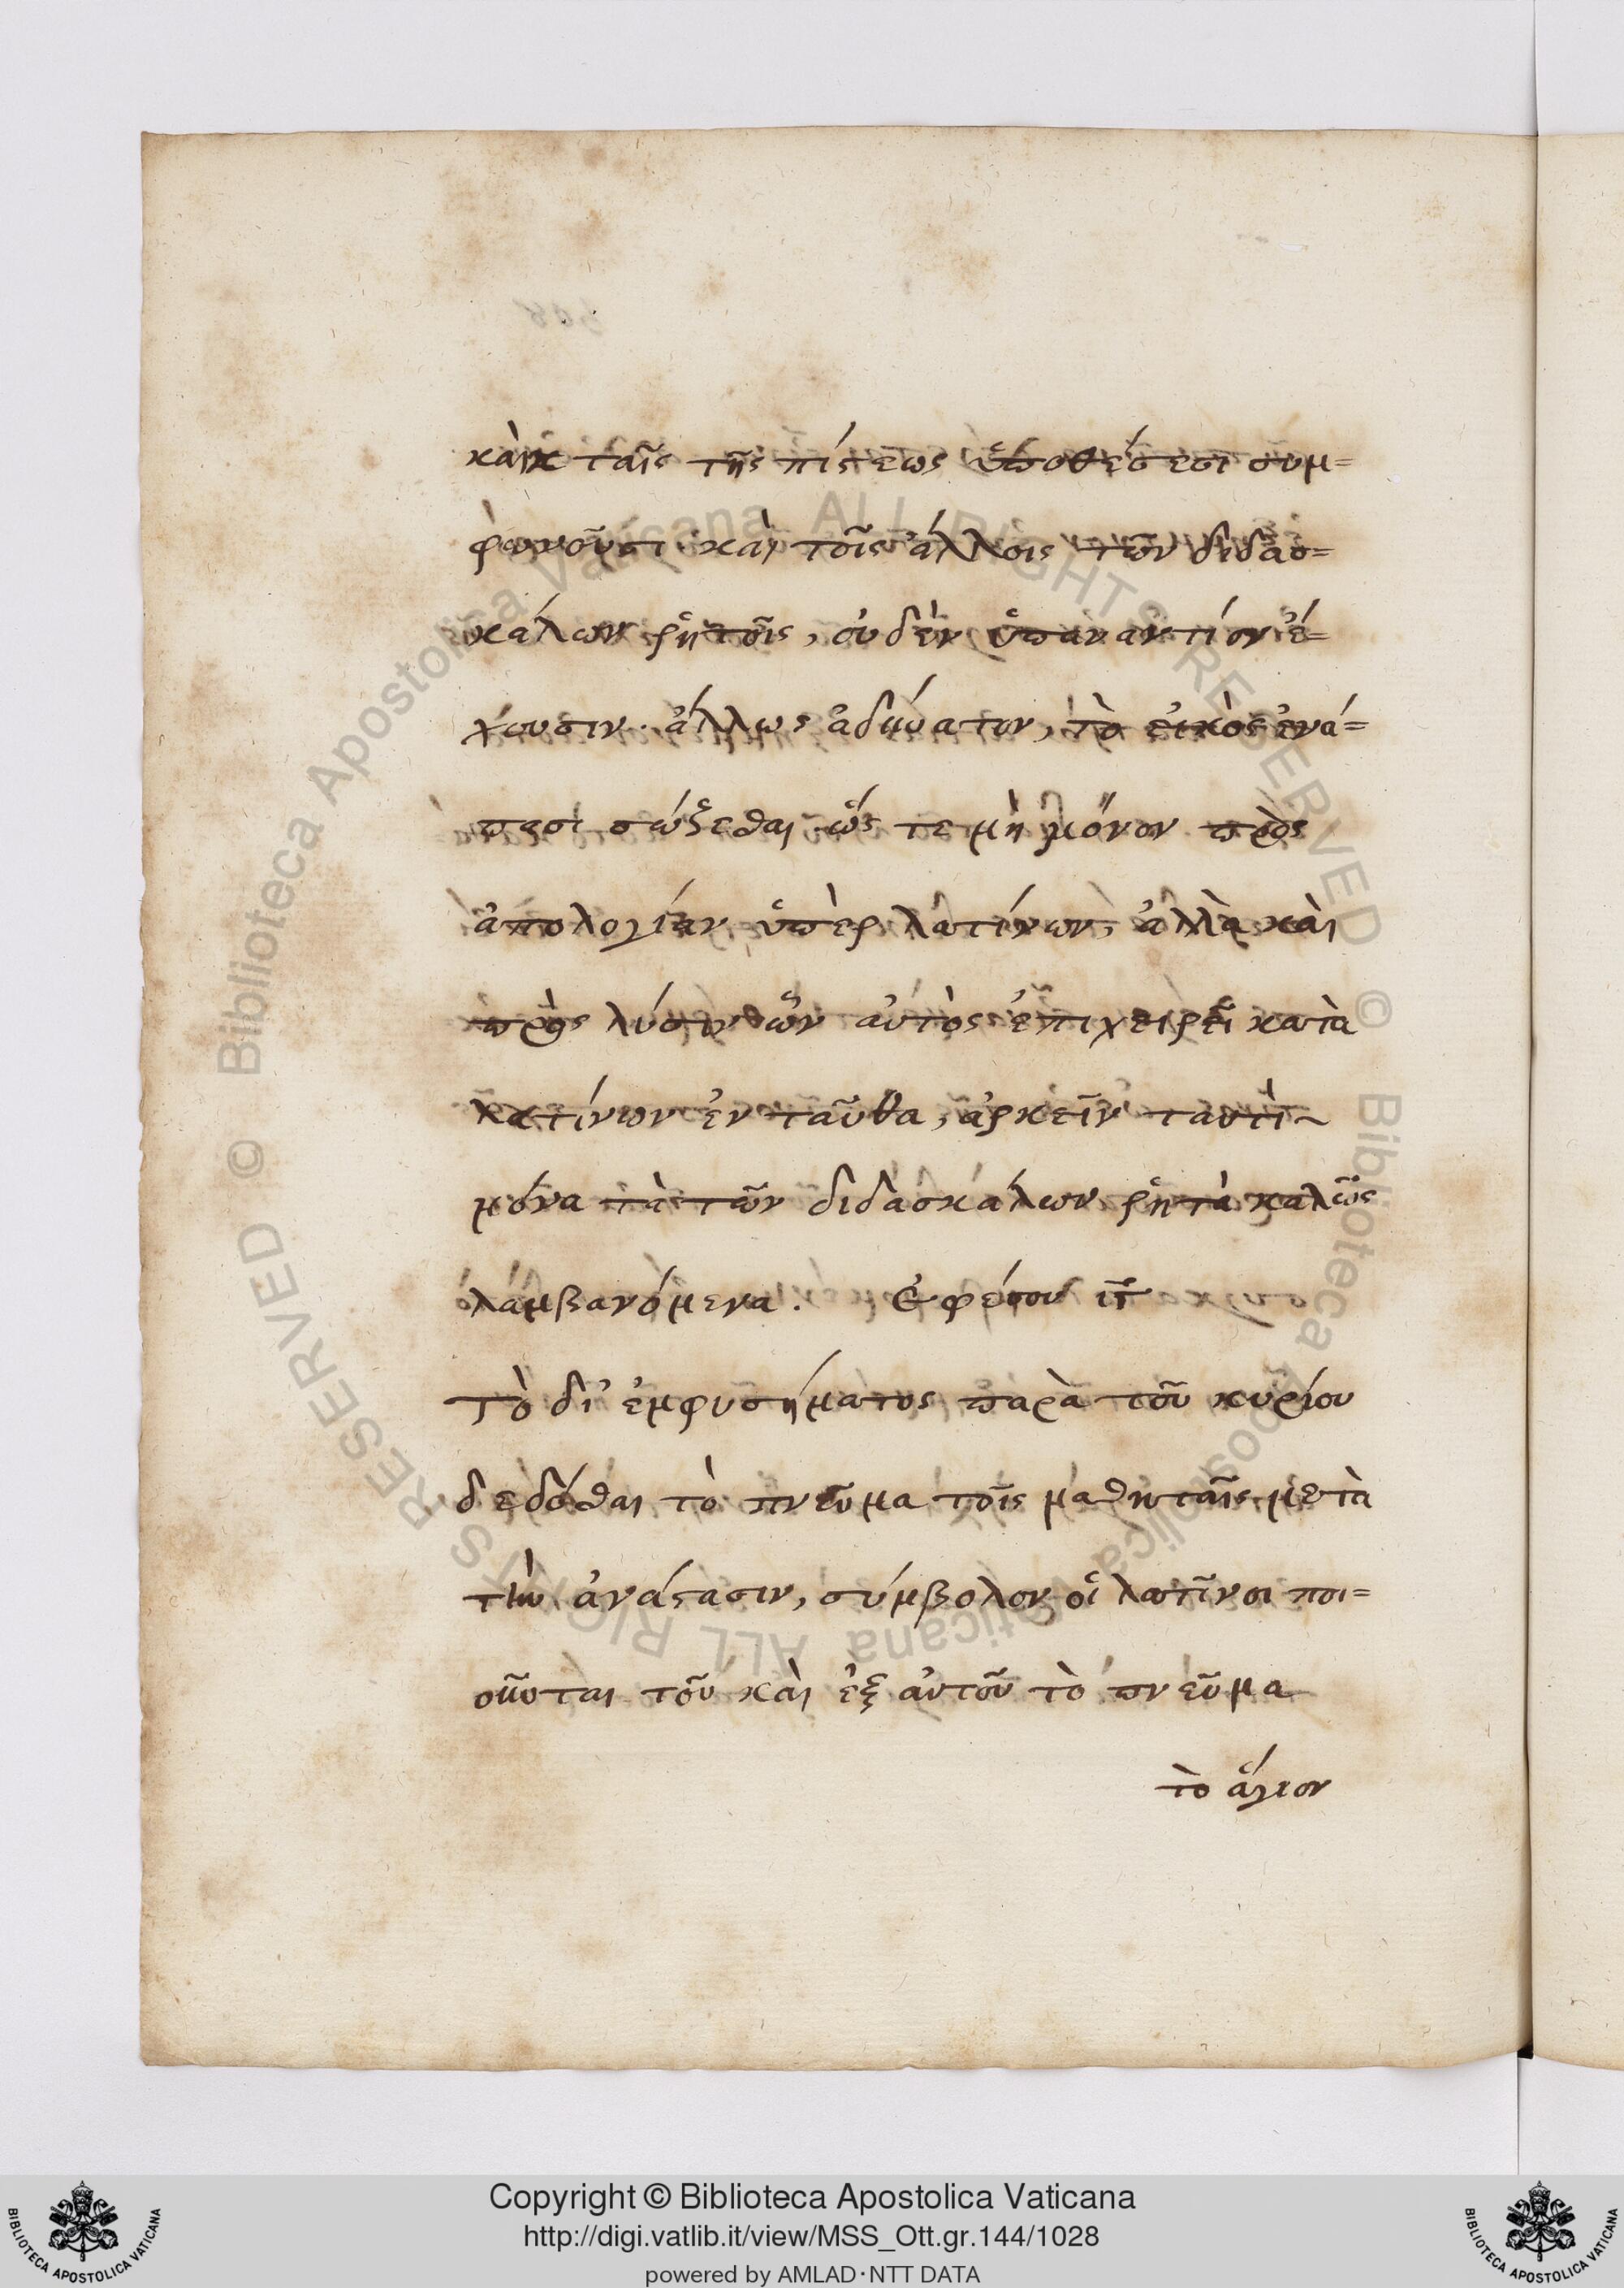 καὶ ταῖς τῆς πίστεως ὑποθέσεσι συμ=
φωνοῦσι καὶ τοῖς ἄλλοις τῶν διδασ=
κάλων ῥητοῖς, οὐδὲν ὑπαναντίον ἔ=
χουσιν. ἄλλως ἀδύνατον, τὸ εἰκὸς ἐν ἅ=
πασι σώζεσθαι ὥς τε μὴ μόνον πρὸς
ἀπολογίαν ὑπὲρ λατίνων, ἀλλὰ καὶ
πρὸς λύσιν ὧν αὐτὸς ἐπιχειρεῖ κατὰ
λατίνων ἐν ταῦθα, ἀρκεῖν ταυτὶ
μόνα τὰ τῶν διδασκάλων ῥητὰ καλῶς
λαμβανόμενα. Ἐφέσου ιϛ
Τὸ δι' ἐμφυσήματος παρὰ τοῦ κυρίου
δεδόσθαι τὸ πνεῦμα τοῖς μαθηταῖς μετὰ
τὴν ἀνάστασιν, σύμβολον οἱ λατῖνοι ποι=
οῦνται τοῦ καὶ ἐξ αὐτοῦ τὸ πνεῦμα
τὸ ἅγιον
Copyright © Biblioteca Apostolica Vaticana
http://digi.vatlib.it/view/MSS_Ott.gr.144/1028
powered by AMLAD·NTT DATA
BIBLIOTECA APOSTOLICA VATICANA
BIBLIOTECA APOSTOLICA VATICANA
© Biblioteca Apostolica Vaticana ALL RIGHTS RESERVED
© Biblioteca Apostolica Vaticana ALL RIGHTS RESERVED